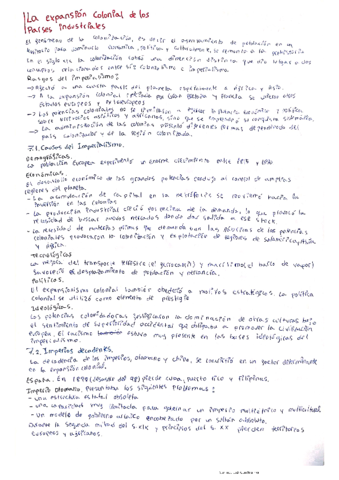 La expansión colonial de los
Países industriales
El fenómeno de la colonización, es decir el asentamiento de población en un
territorio para dominarlo económica, política y culturalmente, se remonta a la prehistoria
El siglo XIX la colonización cobró una dimensión distinta que dio origen a dos
conceptos relacionados entre sí: colonialismo e imperialismo
Rasgos del imperialismo:
- Afectó a una buena parte del planeta, especialmente a África y Asia.
- A la expansión colonial, iniciada por Gran Bretaña y Francia, se unieron otros
estados europeos y extraeuropeos
- Las potencias coloniales no se limitaron a ejercer su dominio económico y político
sobre territorios
- La administración de las colonias presentó diferentes formas dependiendo del
país colonizador y de la región colonizada.
7.1. Causas del Imperialismo.
Demográficas.
La población europea experimentó un enorme crecimiento entre
Económicas.
El desarrollo económico de las grandes potencias produjo el control de nuevas
regiones del planeta.
- La acumulación de capital en la metrópolis se reconvierte hacia la
inversión en las colonias
- La producción industrial creció por encima de la demanda, lo que produce la
necesidad de buscar nuevos mercados donde dar salida a ese stock.
- La necesidad de materias primas que demandaban las fábricas de las potencias
coloniales la colonización y explotación de regiones de
y África
Tecnológicas
La mejora del transporte terrestre (el ferrocarril) y marítimo (el barco de vapor)
favoreció el desplazamiento de población y mercancía.
Políticas.
El expansionismo colonial también obedeció a motivos estratégicos. La política
colonial se utilizó como elemento de prestigio
Ideológicas.
Las potencias colonizadoras justificaron la dominación de otras culturas bajo
el sentimiento de superioridad occidental que obligaba a promover la civilización
europea. El racismo estuvo muy presente en las bases ideológicas del
imperialismo.
7.2. Imperios decadentes.
La decadencia de los imperios, otomano y chino, se convirtió en un factor determinante
en la expansión colonial.
España. En 1898 (desastre del 98) pierde Cuba, Puerto Rico y Filipinas.
Imperio otomano. Presentaba los siguientes problemas:
- una estructura estatal obsoleta
- una capacidad muy limitada para gobernar un imperio multiétnico y multicultural
- Un modelo de gobierno arcaico encabezado por un sultán absolutista.
Durante la segunda mitad del S.XIX y principios del S.XX pierden territorios
europeos y africanos.